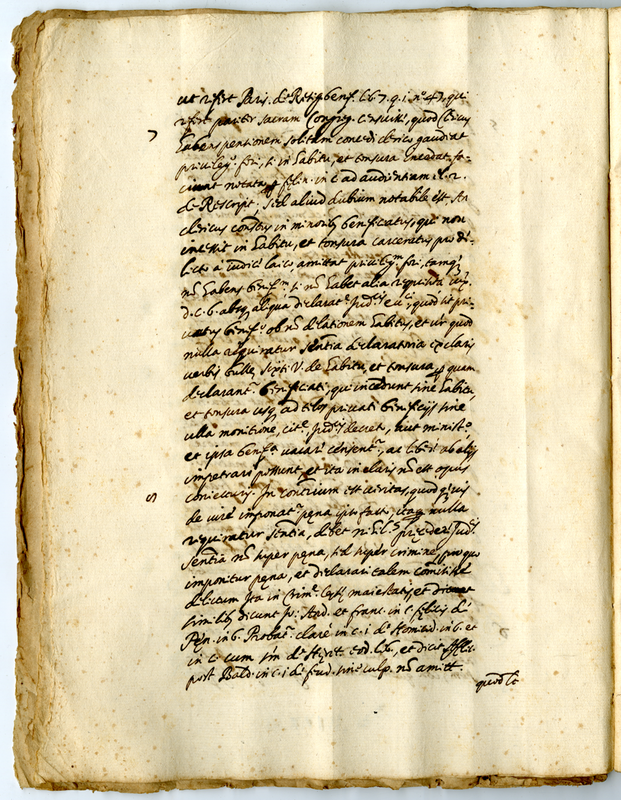 ut refert Paris. de Resig. benef. lib. 7. q. i. nº 47, qui
refert pariter sacram Congreg. censuisse, quod Clericus
7
habens pensionem solitam concedi clericis gaudeat
privileg.º fori, si in habitu, et tonsura incedat, fa-
ciunt notata p felin. in c. ad audientiam el 2.
de Rescript, sed aliud dubium notabile est An
clericus constitutus in minoribus beneficiatus, qui non
incessit in habitu, et tonsura carceratus pro de-
licto a iudice laico amittat privilegium fori, tamq
nō habens benefm si nō habet alia requisita
d. c. 6. absq aliqua declarate Judis quod sit pri-
vatus benefº ob nō delationem habitus, et vr quod
nulla requiratur sententia declaratoria ex claris
verbis bulle Sixti V. de habitu, et tonsura p quam
declarant beneficiati, qui incedunt sine habitu,
et tonsura usq ad tales privati beneficijs sine
ulla monitione, cite, Judis decreto, aut ministº
et ipsa benefa vacari censentr, ac libere ab alijs
impetrari possunt, et ita in claris nō est opus
8
coniecturis. In contrarium est veritas, quod q̄vis
de iure imponatr pęna ipso facto, itaq nulla
requiratur sententia, debet pręcedere Judis
sententia nō super pęna, sed super crimine, pro quo
imponitur pęna, et declarari talem comisisse
delictum Ita in Crime lesę maiestatis, et
similibus dicunt Jo: And. et franc. in c. felicis de
Pęn. in 6. Probatr clare in c. i de Homicid. in 6. et
in c. cum sm de Hęret. eod. lib., et dicit Afflic.
post Bald. in c. i de feud. sine culp. nō amitt.
quod sc